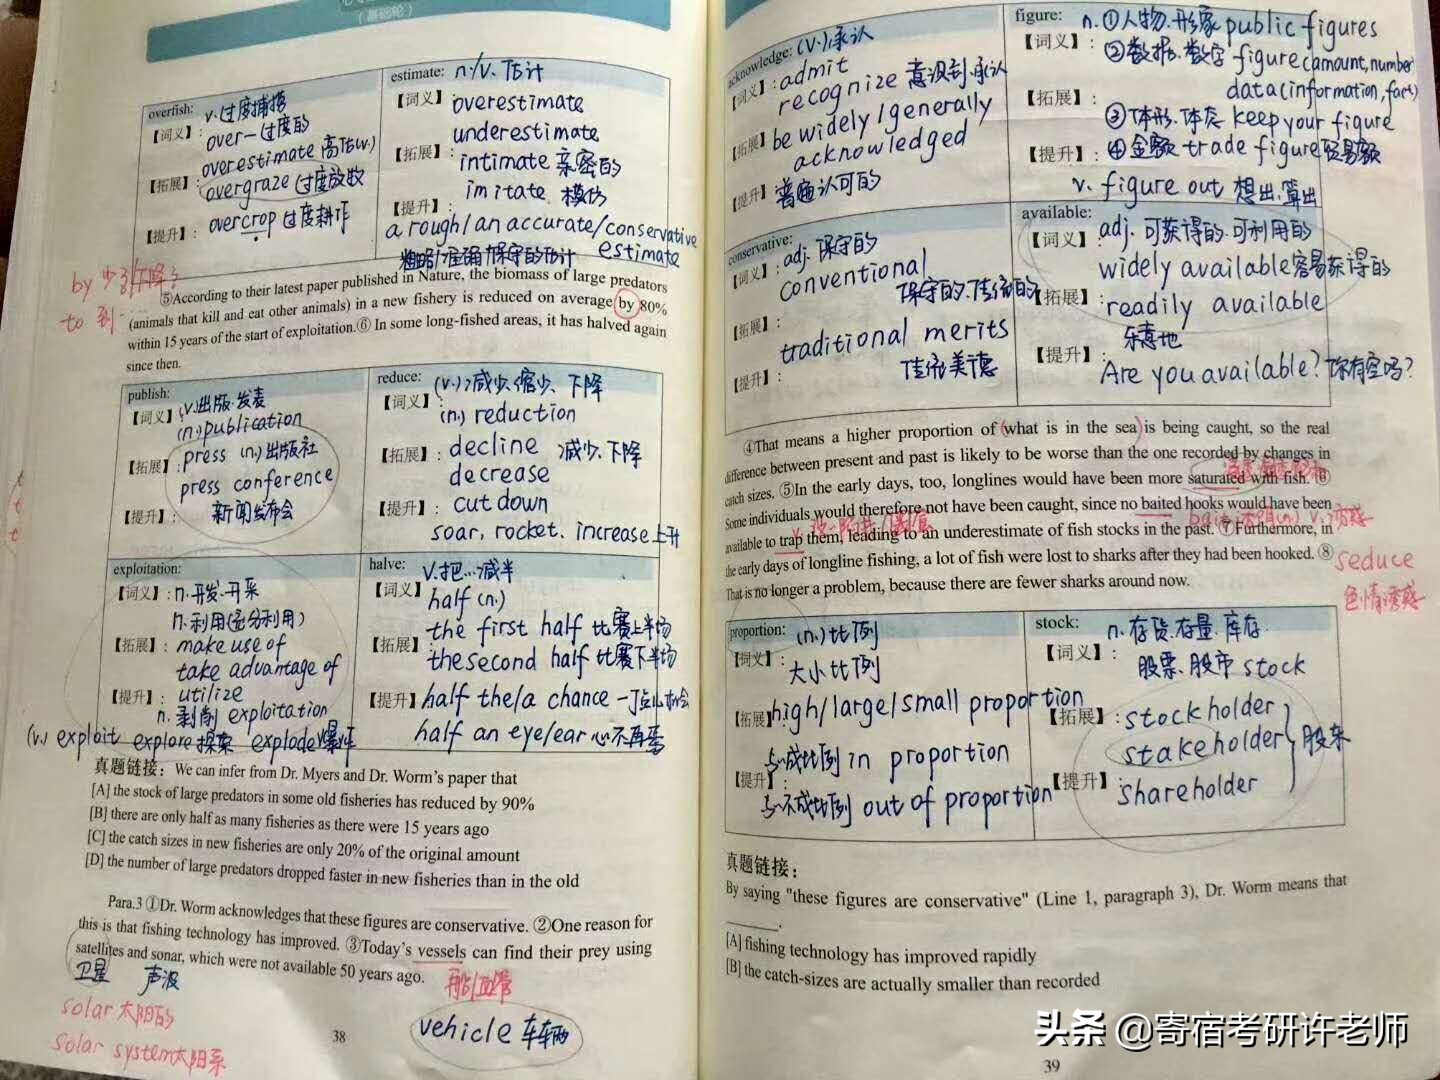 （基础轮）
overfish:
v.过度捕捞
【词义】:
over-过度的
overestimate 高估(v.)
【拓展】:
overgraze 过度放牧
【提升】:
overcrop 过度耕作
estimate: n./v. 估计
【词义】:
overestimate
underestimate
【拓展】:
intimate 亲密的
imitate 模仿
【提升】:
a rough/an accurate/conservative
estimate
粗略/准确/保守的估计
by 少了/下降了
to 到…
⑤According to their latest paper published in Nature, the biomass of large predators
(animals that kill and eat other animals) in a new fishery is reduced on average by 80%
within 15 years of the start of exploitation.⑥ In some long-fished areas, it has halved again
since then.
publish:
【词义】:
(v.)出版.发表
(n.)publication
【拓展】:
press (n.)出版社
press conference
【提升】:
新闻发布会
reduce:
(v.)减少.缩少.下降
【词义】:
(n.) reduction
【拓展】:
decline 减少、下降
decrease
【提升】:
cut down
soar, rocket, increase上升
exploitation:
【词义】:n.开发.开采
n.利用(充分利用)
【拓展】:make use of
take advantage of
【提升】:utilize
n.剥削 exploitation
(v.) exploit explore探索 explode爆炸
halve:
v.把…减半
【词义】:
half (n.)
【拓展】:
the first half 比赛上半场
the second half 比赛下半场
【提升】:
half the/a chance 一丁点儿机会
half an eye/ear 心不在焉
真题链接：We can infer from Dr. Myers and Dr. Worm's paper that
[A] the stock of large predators in some old fisheries has reduced by 90%
[B] there are only half as many fisheries as there were 15 years ago
[C] the catch sizes in new fisheries are only 20% of the original amount
[D] the number of large predators dropped faster in new fisheries than in the old
Para.3 ①Dr. Worm acknowledges that these figures are conservative. ②One reason for
this is that fishing technology has improved. ③Today's vessels can find their prey using
satellites and sonar, which were not available 50 years ago.
卫星 声波
solar 太阳的
solar system太阳系
vehicle 车辆
38
acknowledge: (v.)承认
【词义】:admit
recognize 意识到.承认
【拓展】:
be widely/generally
acknowledged
【提升】:
普遍认可的
figure:
n.①人物.形象 public figures
【词义】:
②数据.数字 figure(amount,number)
data(information,fact)
【拓展】:
③体形.体态 keep your figure
【提升】:
④金额 trade figure 贸易额
v. figure out 想出.算出
conservative:
adj.保守的
【词义】:
conventional
保守的.传统的
【拓展】:
traditional merits
【提升】:
传统美德
available:
【词义】:
adj.可获得的.可利用的
widely available容易获得的
【拓展】:
readily available
乐意地
【提升】:
Are you available? 你有空吗?
④That means a higher proportion of what is in the sea is being caught, so the real
difference between present and past is likely to be worse than the one recorded by changes in
catch sizes. ⑤In the early days, too, longlines would have been more saturated with fish. ⑥
Some individuals would therefore not have been caught, since no baited hooks would have been
available to trap them, leading to an underestimate of fish stocks in the past. ⑦Furthermore, in
the early days of longline fishing, a lot of fish were lost to sharks after they had been hooked. ⑧
That is no longer a problem, because there are fewer sharks around now.
seduce
色情诱惑
proportion:
(n.)比例
【词义】:
大小比例
【拓展】
high/large/small proportion
与…成比例 in proportion
【提升】:
与…不成比例 out of proportion
stock:
n.存货.存量.库存
【词义】:
股票.股市 stock
【拓展】:
stockholder
stakeholder 股东
【提升】:
shareholder
真题链接：
By saying "these figures are conservative" (Line 1, paragraph 3), Dr. Worm means that
.
[A] fishing technology has improved rapidly
[B] the catch-sizes are actually smaller than recorded
39
头条 @寄宿考研许老师